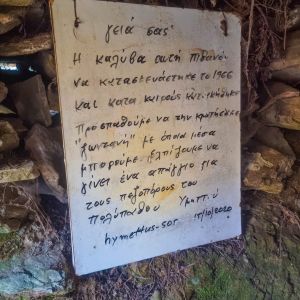 γειά σας
Η καλύβα αυτή πιθανόν
να κατασκευάστηκε το 1966
και κατά καιρούς
προσπαθούμε να την κρατήσουμε
"ζωντανή" με όποια μέσα
μπορούμε. Ελπίζουμε να
γίνει ένα απάγγιο για
τους πεζοπόρους του
πολύπαθου Υμηττού
hymettus-sor 15/10/2020